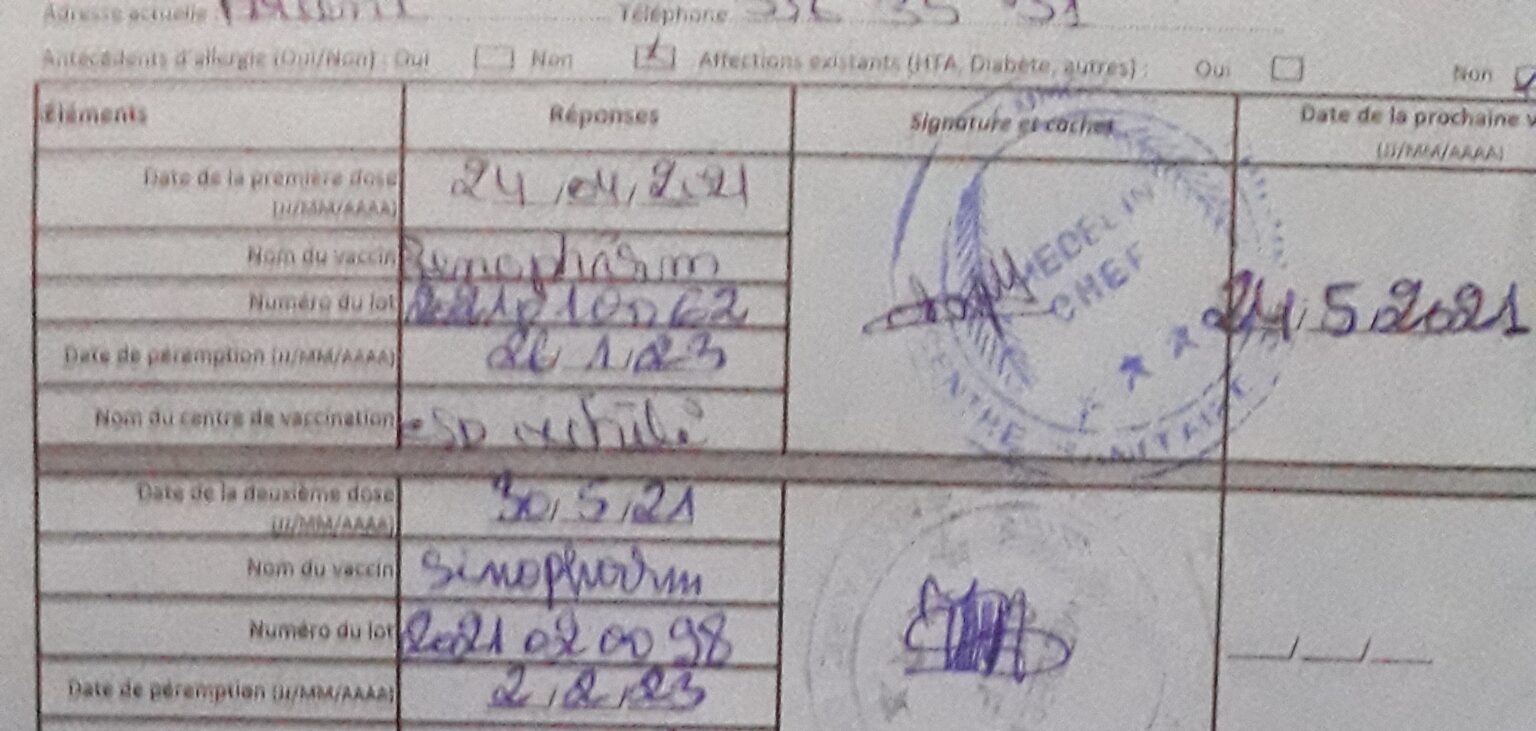 Adresse actuelle : Téléphone
Antécédents d'allergie (Oui/Non) : Oui Non Affections existants (HTA, Diabète, autres) : Oui Non
Éléments Réponses Signature et cachet Date de la prochaine
(JJ/MM/AAAA)
Date de la première dose 24/04/2021
(JJ/MM/AAAA)
Nom du vaccin
MEDECIN
CHEF
Numéro du lot
24/5/2021
Date de péremption (JJ/MM/AAAA) 26/1/23
Nom du centre de vaccination
CENTRE SANITAIRE
Date de la deuxième dose 30/5/21
(JJ/MM/AAAA)
Nom du vaccin Sinopharm
Numéro du lot 2021020098
Date de péremption (JJ/MM/AAAA) 2/2/23